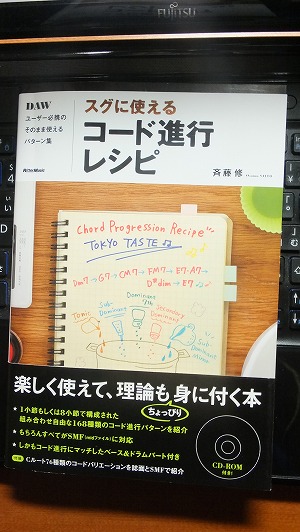 FUJITSU
DAW
ユーザー必携の
そのまま使える
パターン集
スグに使える
コード進行
レシピ
RittorMusic
斉藤修
Chord Progression Recipe
TOKYO TASTE♫
Dm7→G7→CM7→FM7→E7・A7→
D#dim→E7
Tonic
Sub-Dominant
Dominant 7th
Secondary Dominant
Sub-Dominant Minor
楽しく使えて、理論も身に付く本
ちょっぴり
★1小節もしくは8小節で構成された
組み合わせ自由な168種類のコード進行パターンを紹介
★もちろんすべてがSMF(midiファイル)に対応
★しかもコード進行にマッチしたベース&ドラムパート付き
Cルート76種類のコードバリエーションを誌面とSMFで紹介
CD-ROM
付き!